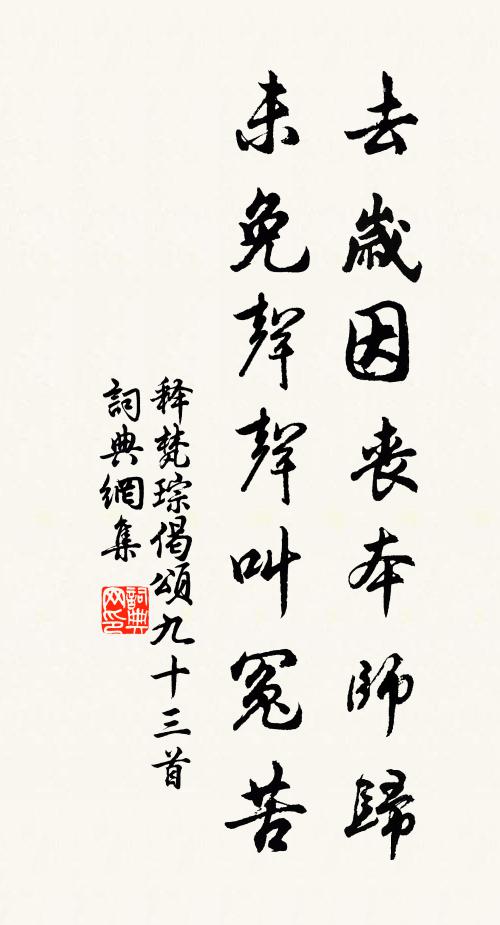 去歲因喪本師歸
未免聲聲叫冤苦
释梵琮偈頌九十三首
詞典網集
詞典
网印